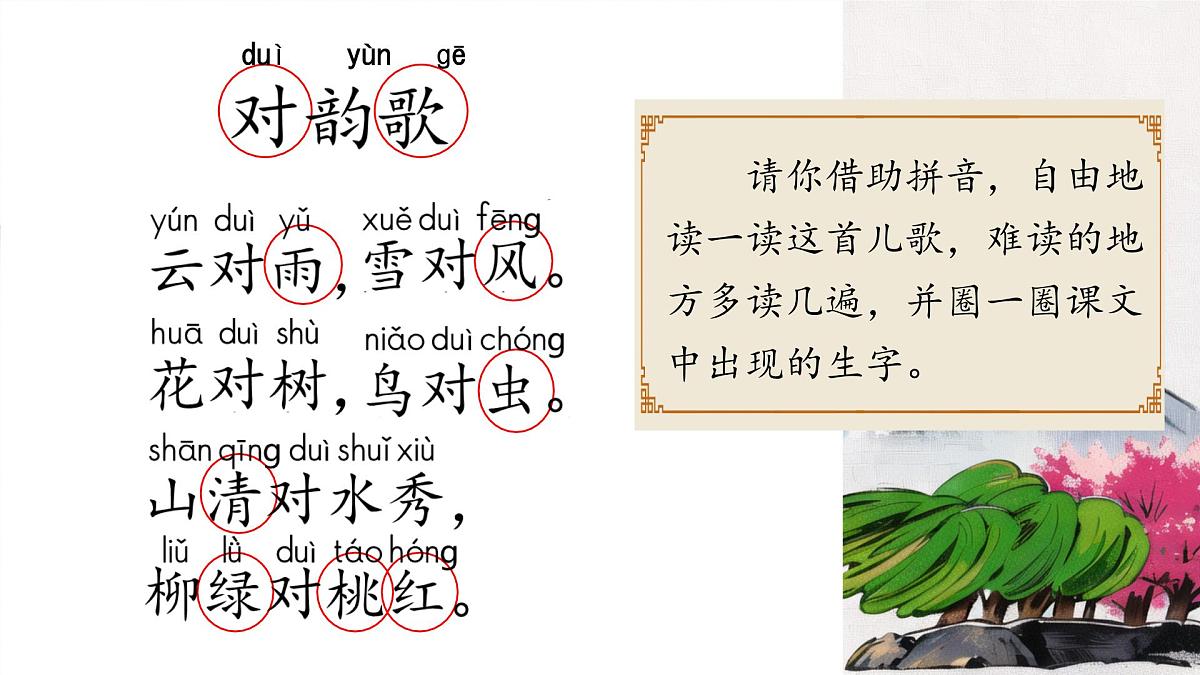 duì yùn gē
对韵歌
yún duì yǔ xuě duì fēng
云对雨，雪对风。
huā duì shù niǎo duì chóng
花对树，鸟对虫。
shān qīng duì shuǐ xiù
山清对水秀，
liǔ lǜ duì táo hóng
柳绿对桃红。
请你借助拼音，自由地
读一读这首儿歌，难读的地
方多读几遍，并圈一圈课文
中出现的生字。